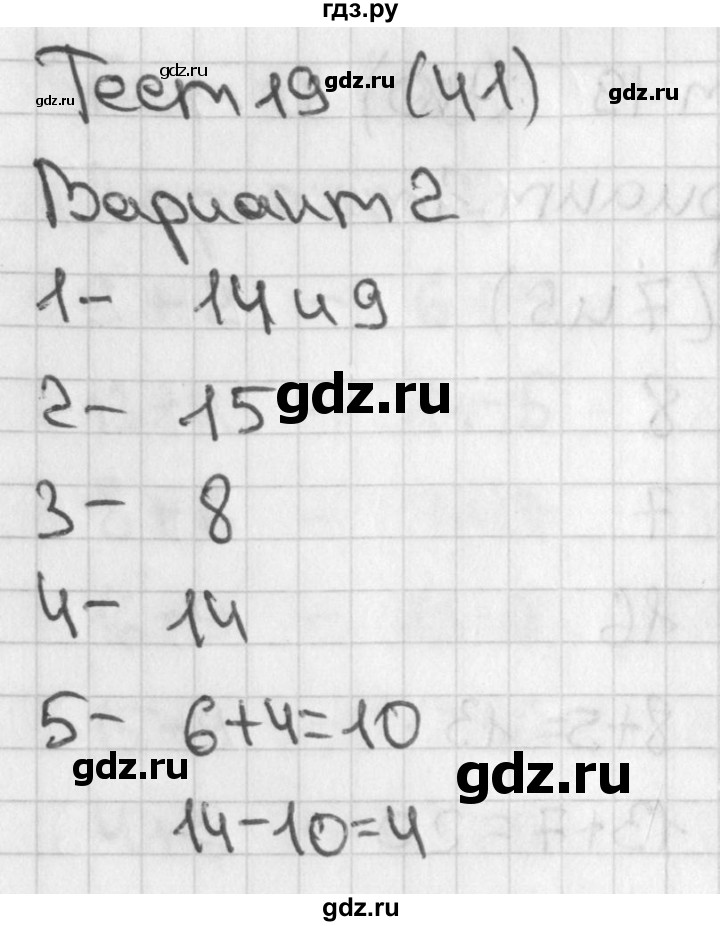 гдз.ру
gdz.ru
gdz.ru
gdz.ru
gdz.ru
Тест 19 (41)
Вариант 2
1- 14 и 9
2- 15
gdz.ru
3- 8
4- 14
5- 6+4=10
gdz.ru
gdz.ru
14-10=4
gdz.ru